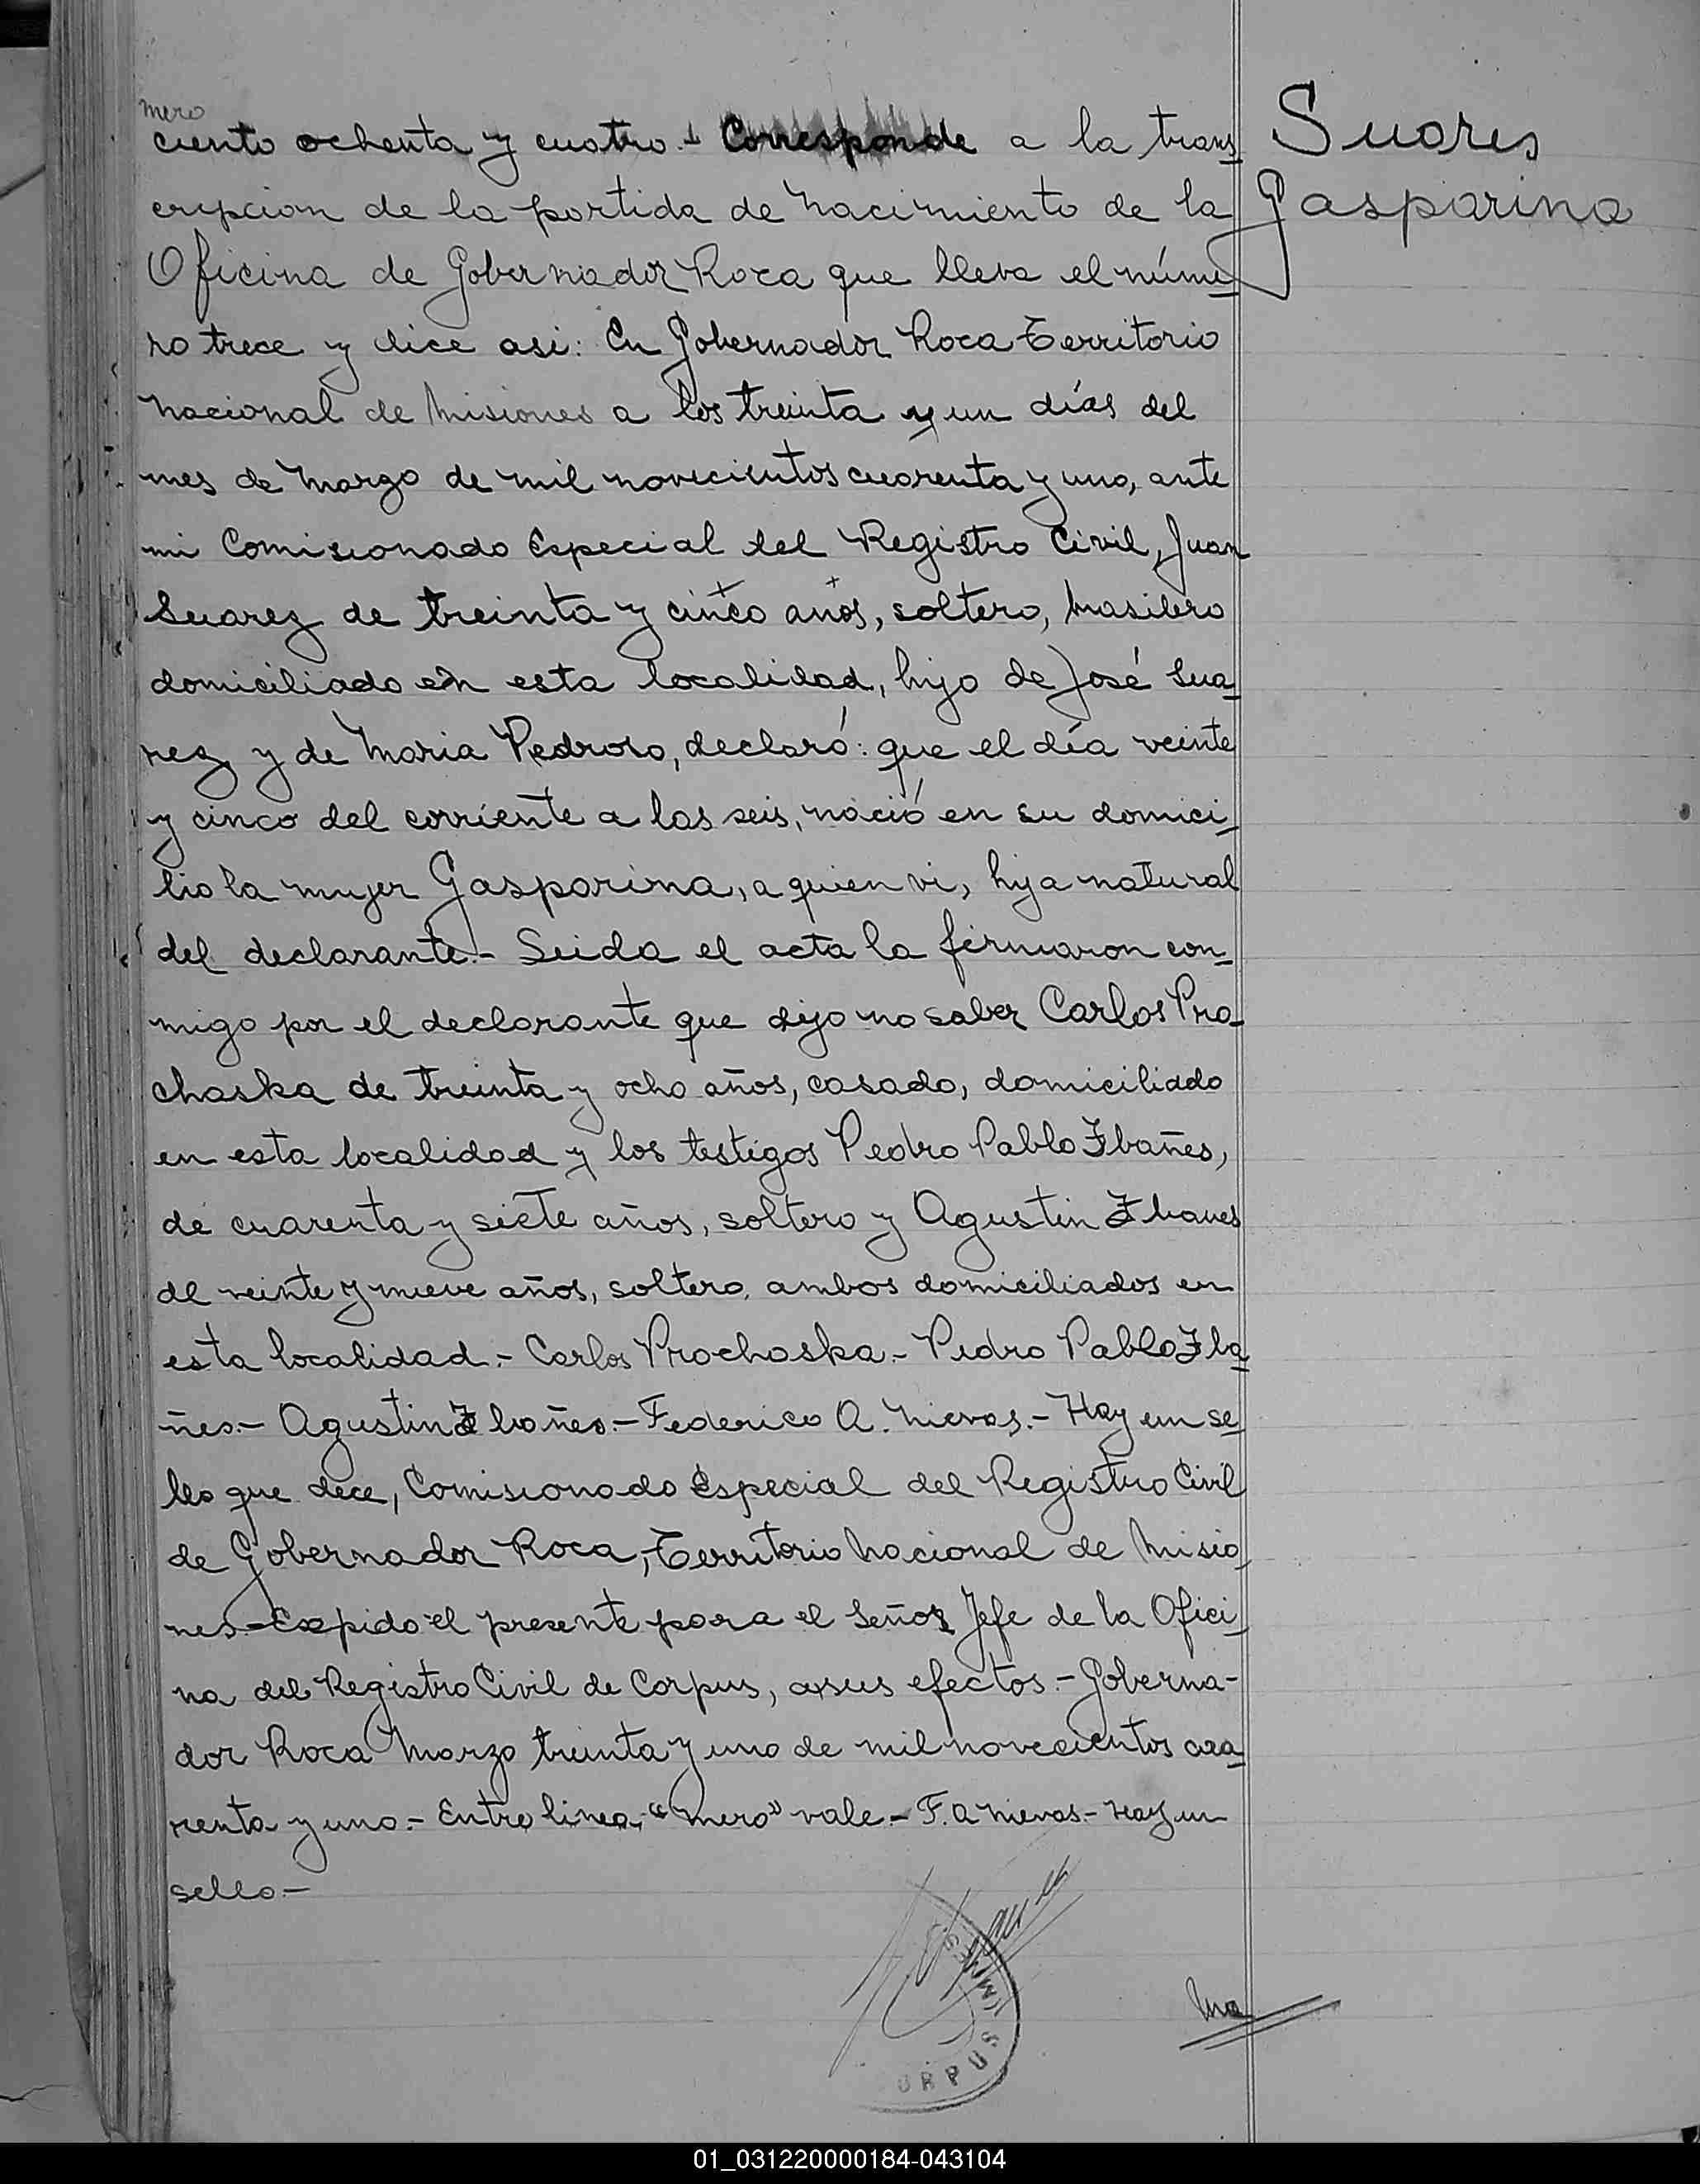 mero
ciento ochenta y cuatro.- Corresponde a la trans
Suares
cripcion de la partida de nacimiento de la
Gasparina
Oficina de Gobernador Roca que lleva el núme
ro trece y dice asi: En Gobernador Roca Territorio
nacional de Misiones a los treinta y un días del
mes de Marzo de mil novecientos cuarenta y uno, ante
mi Comisionado Especial del Registro Civil, Juan
Suarez de treinta y cinco años, soltero, brasilero
domiciliado en esta localidad, hijo de José Sua
rez y de Maria Pedroso, declaró: que el día veinte
y cinco del corriente a las seis, nació en su domici
lio la mujer Gasparina, a quien vi, hija natural
del declarante.- Leida el acta la firmaron con
migo por el declarante que dijo no saber Carlos Pro
chaska de treinta y ocho años, casado, domiciliado
en esta localidad y los testigos Pedro Pablo Ibañes,
de cuarenta y siete años, soltero y Agustin Ibanes
de veinte y nueve años, soltero, ambos domiciliados en
esta localidad.- Carlos Prochaska.- Pedro Pablo Iba
ñes.- Agustin Ibañes.- Federico A. Nievas.- Hay un se
llo que dece, Comisionado Especial del Registro Civil
de Gobernador Roca, Territorio Nacional de Misio
nes- Expido el presente para el Señor Jefe de la Ofici
na del Registro Civil de Corpus, a sus efectos.- Goberna-
dor Roca Marzo treinta y uno de mil novecientos cua
renta y uno.- Entre linea "mero" vale.- F. A Nievas.- Hay un
sello.-
01_031220000184-043104